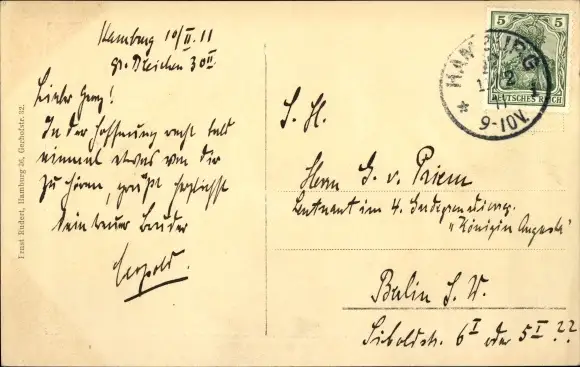 Hamburg 10/II. 11
gr. Bleichen 30 II
Lieber Georg!
In der Hoffnung recht bald
einmal etwas von Dir
zu hören, grüßt herzlichst
Dein treuer Bruder
Leopold.
Ernst Rudert, Hamburg 36, Gerhofstr. 32.
5 5
DEUTSCHES REICH
HAMBURG
11
9-10V.
* 1
S. H.
Herrn G. v. Priem
Leutnant im 4. Garderegiment
"Königin Augusta"
Berlin S. W.
6 I oder 5 I ??